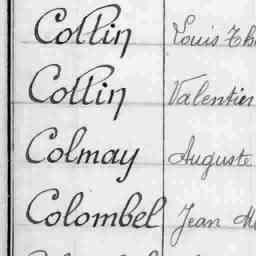 Collin Louis
Collin Valentin
Colmay Auguste
Colombel Jean